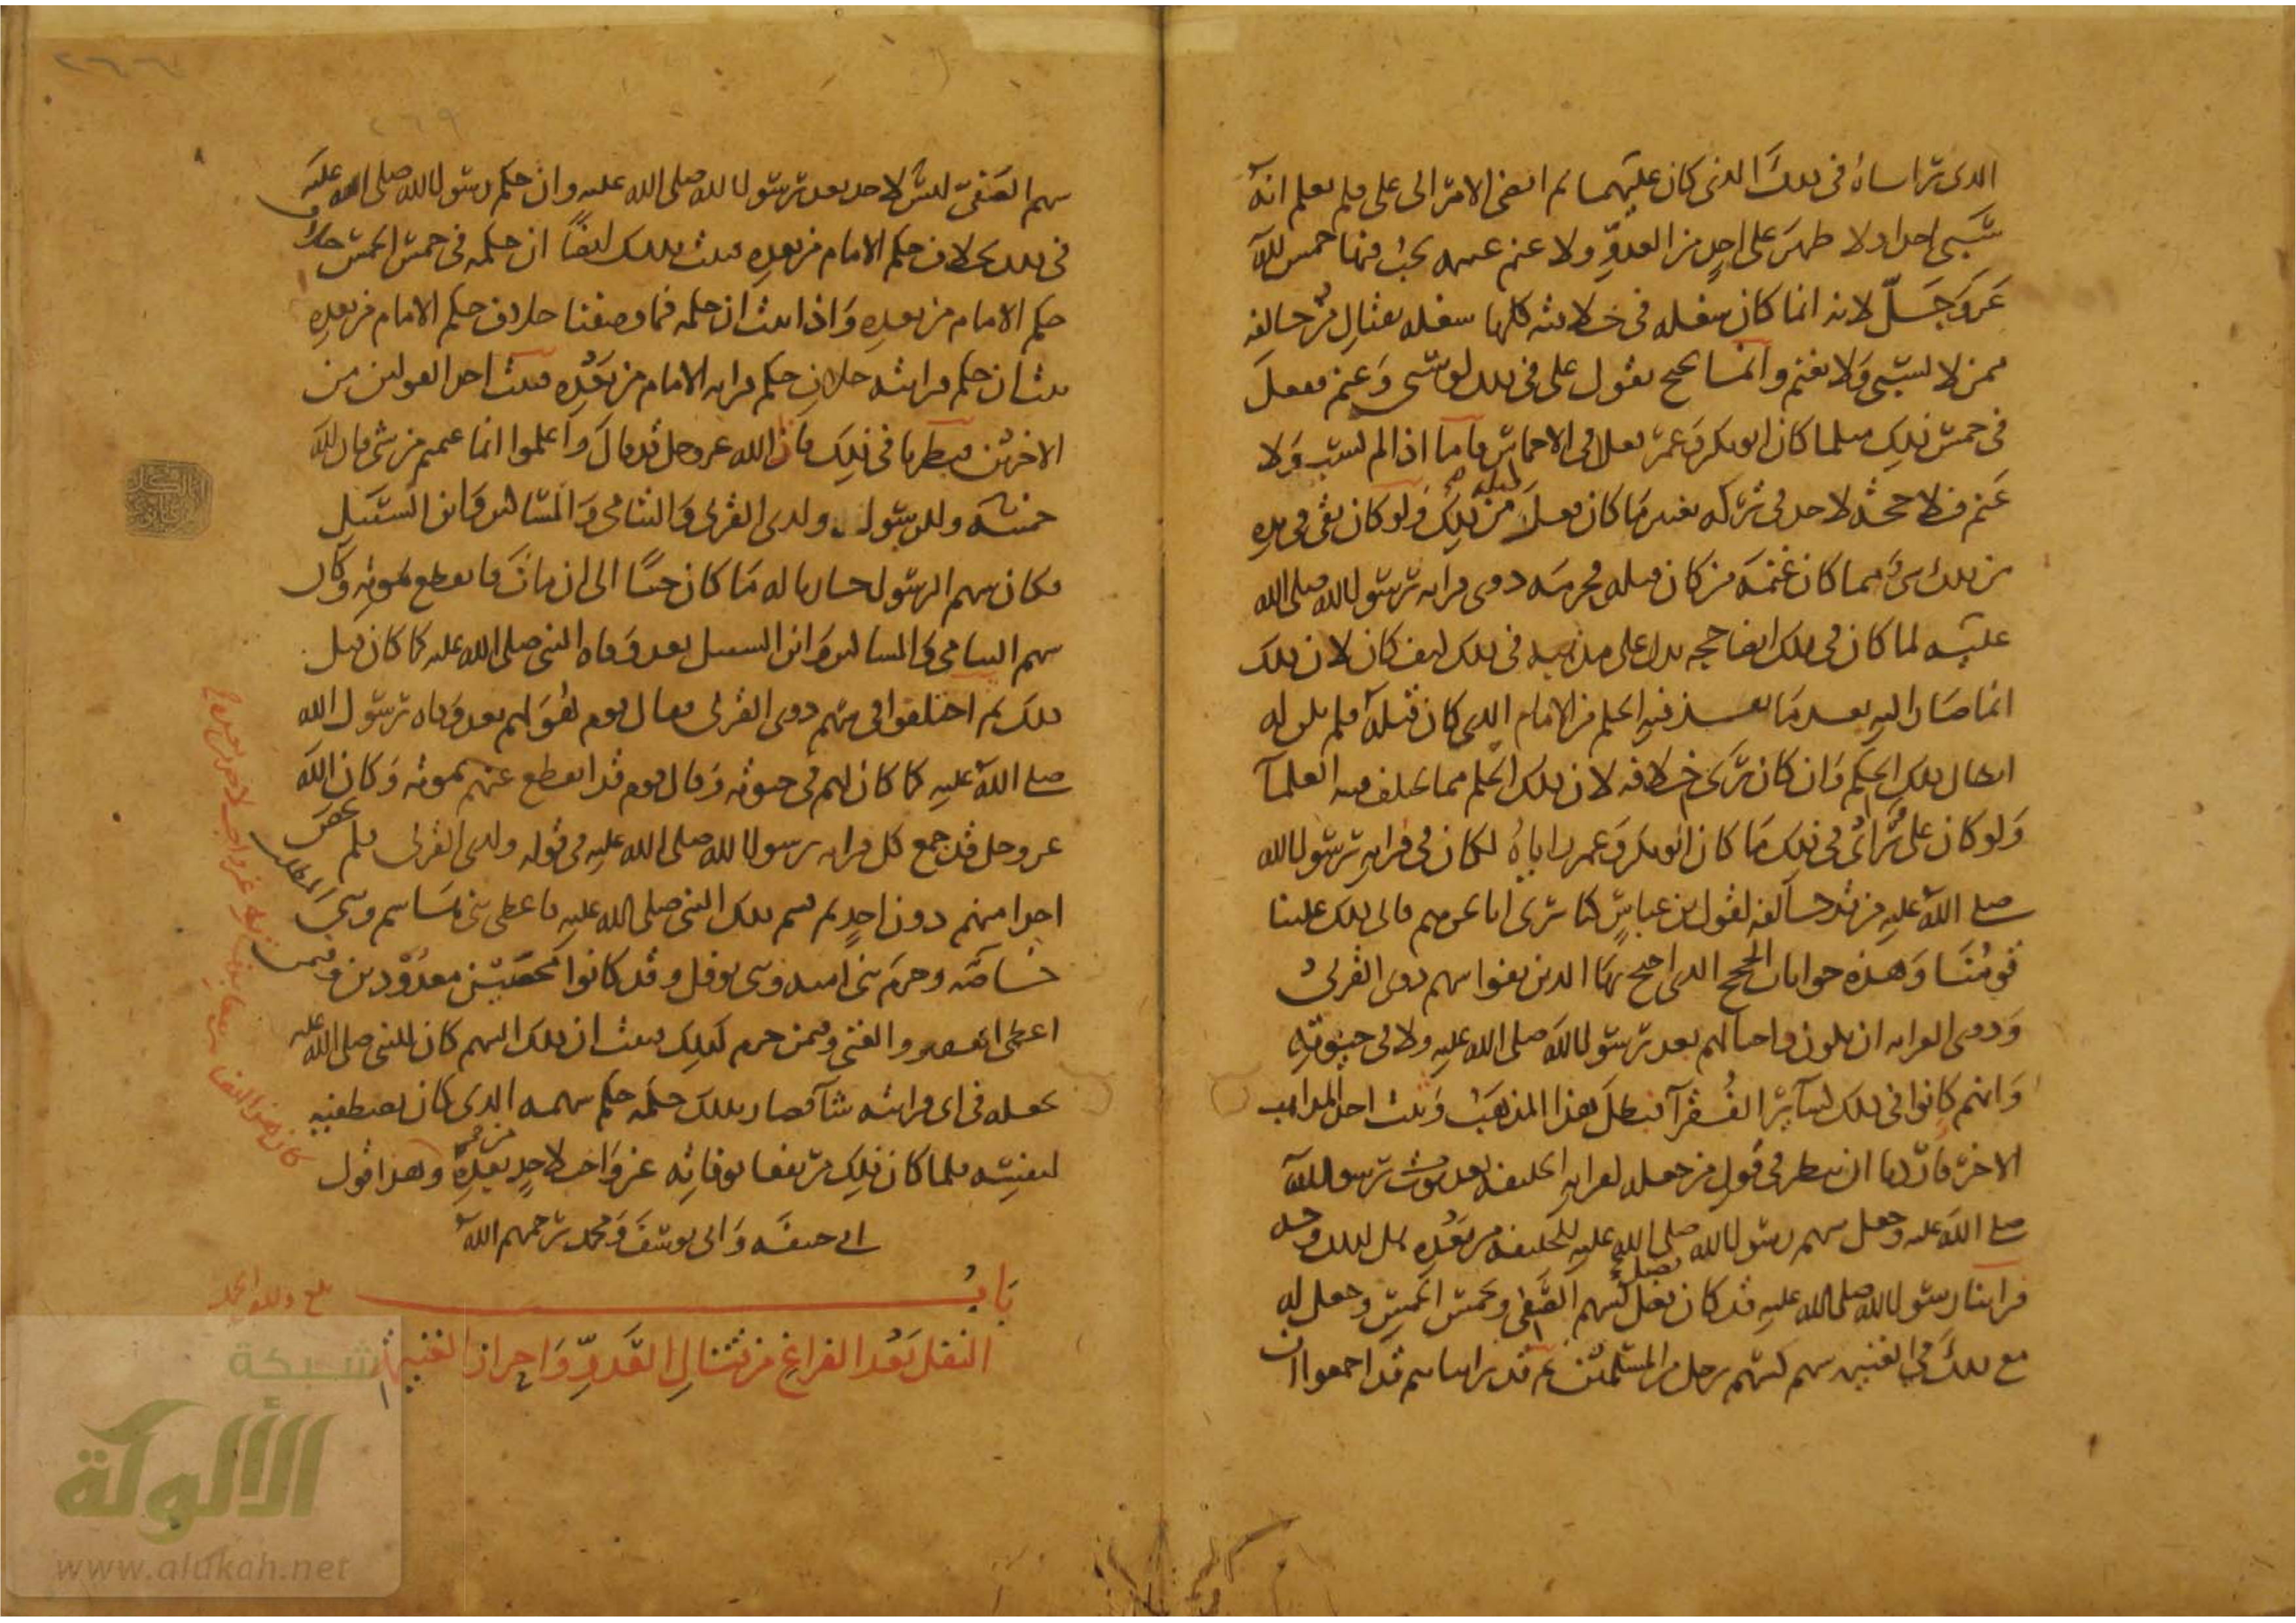 الذى رأياه فى ذلك الذى كان عليهما ثم افضى الامر الى على فلم يعلم انه
سبى احدا ولا ظهر على احد من العدو ولا غنم غنيمة يجب فيها خمس لله
عز وجل لانه انما كان شغله فى خلافته كلها شغله بقتال من خالفه
ممن لا يسبى ولا يغنم وانما يحتج بقول على فى ذلك لو سبى وغنم ففعل
فى خمس ذلك مثلما كان ابو بكر وعمر فعلا فى الاخماس فاما اذا لم يسب ولا
غنم فلا حجة لاحد فى تركه تغيير ما كان فعل من ذلك قبله ولو كان بقى فى يده
من ذلك شىء مما كان غنمه من كان قبله فحرمه ذوى قرابة رسول الله صلى الله
عليه لما كان فى ذلك ايضا حجة تدل على مذهبه فى ذلك كيف كان لان ذلك
انما صار اليه بعد ما نفذ فيه الحكم من الامام الذى كان قبله فلم يكن له
ابطال ذلك الحكم وان كان يرى خلافه لان ذلك الحكم مما يختلف فيه العلماء
ولو كان على رأى فى ذلك ما كان ابو بكر وعمر رأياه لكان فى قرابة رسول الله
صلى الله عليه من قد خالفه لقول بن عباس كنا نرى انا نحن هم فابى ذلك علينا
قومنا وهذه جوابات الحجج التى احتج بها الذين نفوا سهم ذوى القربى
وذوى القرابة ان يكون واجبا لهم بعد رسول الله صلى الله عليه ولا فى حيوته
وانهم كانوا فى ذلك كسائر الفقراء فبطل هذا المذهب وثبت احد المذاهب
الاخر فاردنا ان ننظر فى قول من جعله لقرابة الخليفة بعد موت رسول الله
صلى الله عليه وجعل سهم رسول الله صلى الله عليه للخليفة من بعده هل لذلك وجه
فراينا رسول الله صلى الله عليه قد كان فضل بسهم الصفى وبخمس الخمس وجعل له
مع ذلك فى الغنيمة سهم كسهم رجل من المسلمين ثم قد رايناهم قد اجمعوا ان
سهم الصفى ليس لاحد بعد رسول الله صلى الله عليه وان حكم رسول الله صلى الله عليه
فى ذلك خلاف حكم الامام من بعده فثبت بذلك ايضا ان حكمه فى خمس الخمس خلاف
حكم الامام من بعده واذا ثبت ان حكمه فيما وصفنا خلاف حكم الامام من بعده
ثبت ان حكم قرابته خلاف حكم قرابة الامام من بعده فثبت احد القولين من
الاخرين فنظرنا فى ذلك فاذا الله عز وجل قد قال واعلموا انما غنمتم من شىء فان لله
خمسه وللرسول ولذى القربى واليتامى والمساكين وابن السبيل
فكان سهم الرسول جاريا له ما كان حيا الى ان مات فانقطع بموته وكان
سهم اليتامى والمساكين وابن السبيل بعد وفاة النبى صلى الله عليه كما كان قبل
ذلك ثم اختلفوا فى سهم ذوى القربى فقال قوم هو لهم بعد وفاة رسول الله
صلى الله عليه كما كان لهم فى حيوته وقال قوم قد انقطع عنهم بموته وكان الله
عز وجل قد جمع كل قرابة رسول الله صلى الله عليه فى قوله ولذى القربى فلم يخص
احدا منهم دون احد ثم قسم ذلك النبى صلى الله عليه فاعطى بنى هاشم وبنى المطلب
خاصة وحرم بنى امية وبنى نوفل وقد كانوا محصيين معدودين وفيمن
اعطى الفقير والغنى وفيمن حرم كذلك فثبت ان ذلك السهم كان للنبى صلى الله عليه
يجعله فى اى قرابته شاء فصار بذلك حكمه حكم سهمه الذى كان يصطفيه
لنفسه فلما كان ذلك مرتفعا بوفاته غير واجب لاحد من بعده وهذا قول
ابى حنيفة وابى يوسف ومحمد رحمهم الله
باب
النفل بعد الفراغ من قتال العدو واحراز الغنيمة
بلغ ولله الحمد
شبكة
الألوكة
www.alukah.net